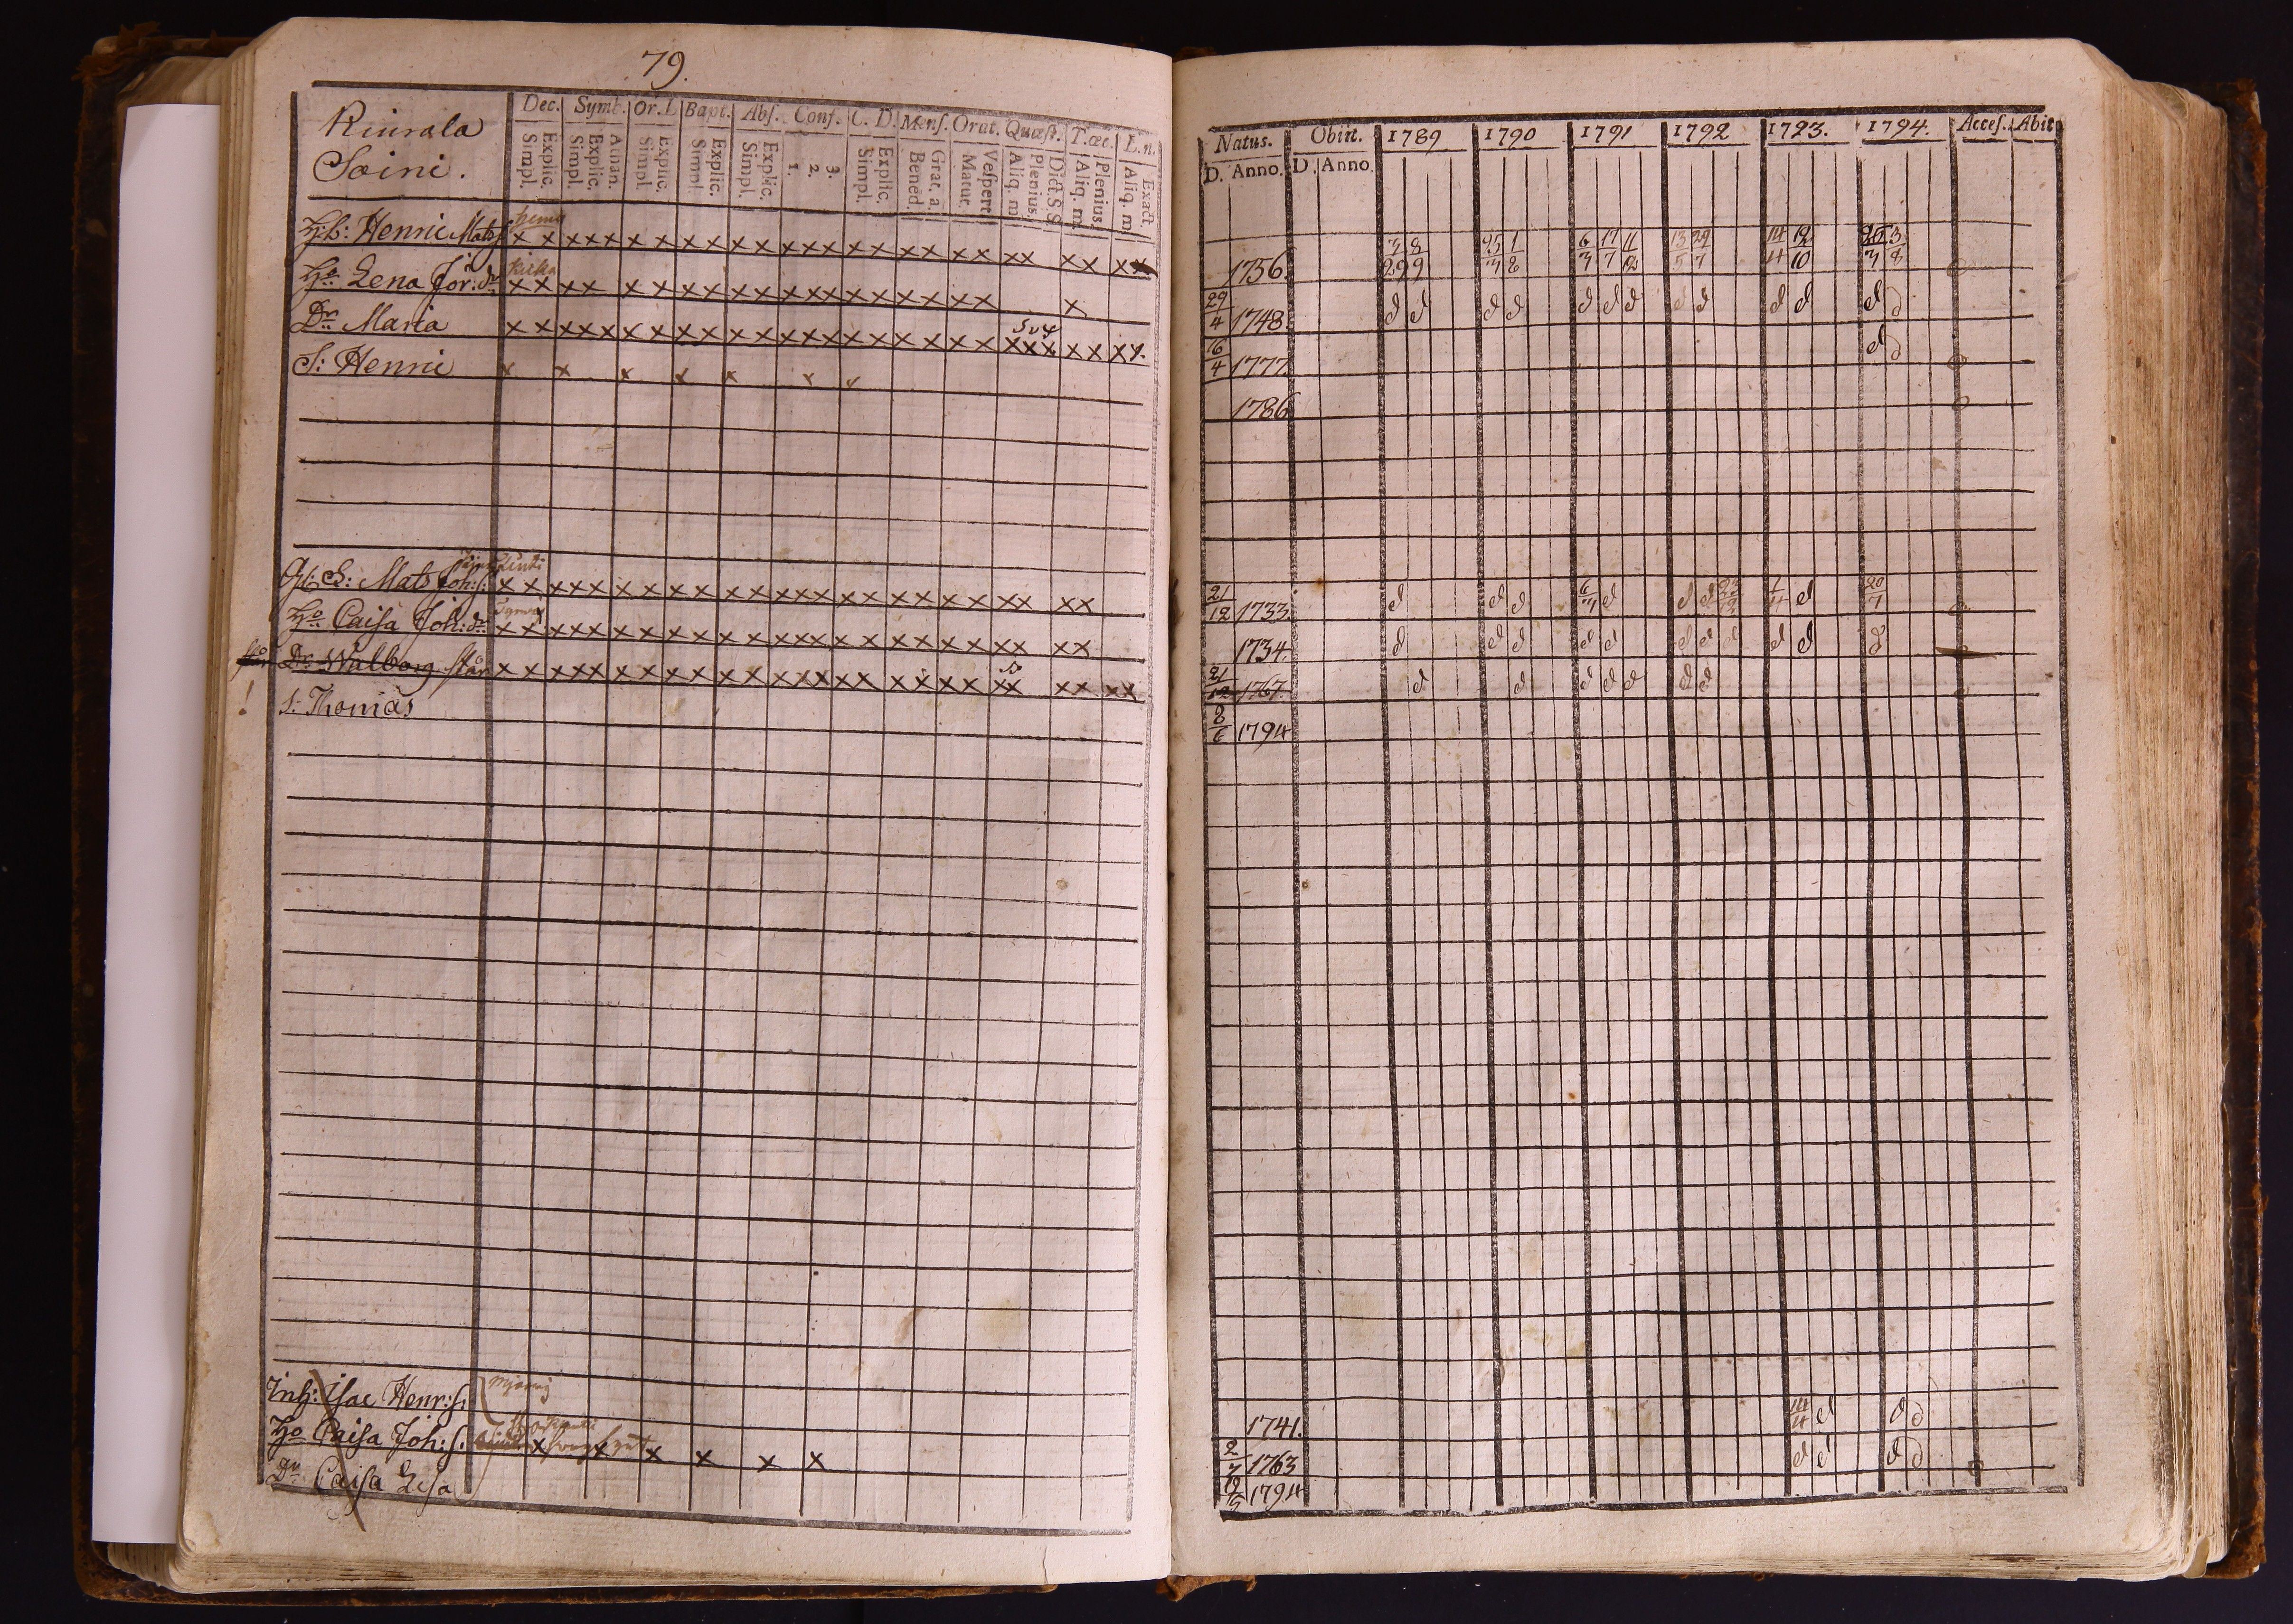 79.
Kiurala
Soini.
Dec. Symb. Or. D Bapt. Abs. Conf. C. D. Mens. Orat. Quæst. T. œc. L. n.
Explic. Simpl. Athan. Explic. Simpl. Explic. Simpl. Explic. Simpl. Explic. Simpl. 1. 2. 3. Explic. Simpl. Grat. a. Bened. Vespert. Matut. Dict. S. S. Plenius. Aliq. m. Plenius. Aliq. m. Exact. Aliq. m.
Henric Mats s. x x x x x x x x x x x x x x x x x x x x x x x x x
Ho Lena Jör: dr x x x x x x x x x x x x x x x x x x x x
Dr Maria x x x x x x x x x x x x x x x x x x x x x x x x x x
S: Henric x x x x x x x
S: Mats Joh: s: x x x x x x x x x x x x x x x x x x x x x x x
Ho Caisa Joh: dr x x x x x x x x x x x x x x x x x x x x x x x
Dr Walborg står x x x x x x x x x x x x x x x x x x x x x x x x x
! s: Thomas
Inh: Isac Henr: s.
Ho Caisa Joh: s. x x x x x x
Dr Caisa Lisa
Natus. Obiit. 1789 1790 1791 1792 1793. 1794. Acces. Abit
D. Anno. D. Anno
1756. 8/9 1/8 6/7 17/7 11/12 13/5 29/7 14/4 12/10 25/7 3/8
29/4 1748. d d d d d d d d d d d d d
16/4 1777. d d
1786
21/12 1733. d d d 6/7 d d d d 20/7
1734. d d d d d d d d d d d
21/12 1767. d d d d d d d
8/6 1794
1741. 14/4 d d d
2/7 1763 d d d d
1794